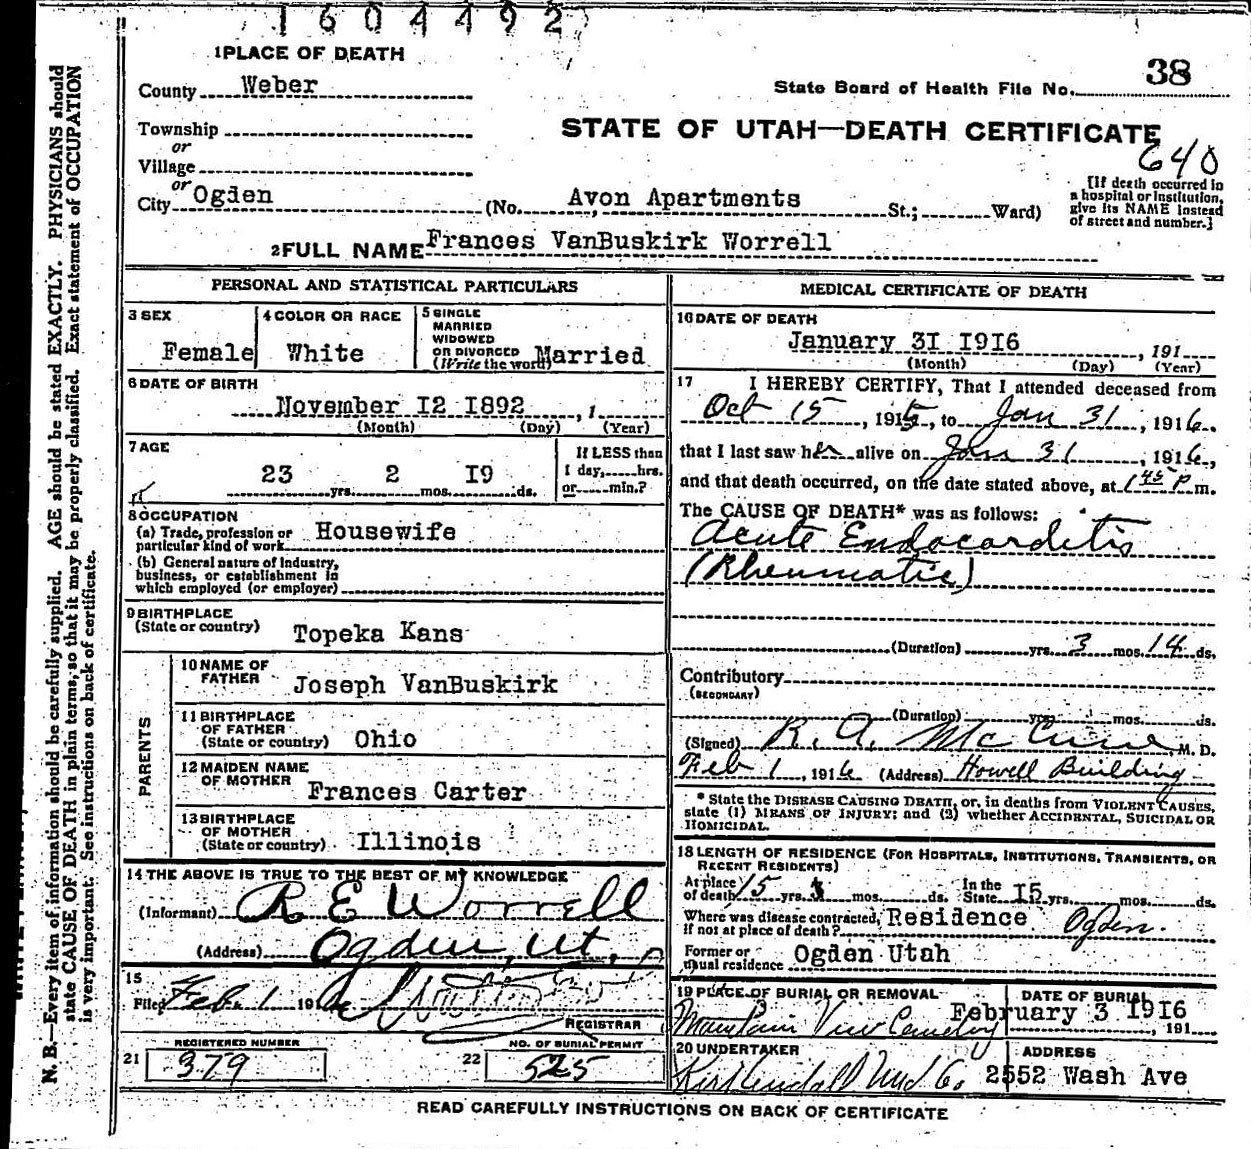 1604492
1 PLACE OF DEATH
38
County Weber
State Board of Health File No.
Township
STATE OF UTAH—DEATH CERTIFICATE
or
640
Village
or
City Ogden (No. Avon Apartments St.; Ward)
[If death occurred in
a hospital or institution,
give its NAME instead
of street and number.]
2 FULL NAME Frances VanBuskirk Worrell
PERSONAL AND STATISTICAL PARTICULARS
3 SEX
Female
4 COLOR OR RACE
White
5 SINGLE
MARRIED
WIDOWED
OR DIVORCED
(Write the word)
Married
6 DATE OF BIRTH
November I2 I892 , 1
(Month) (Day) (Year)
7 AGE
23 yrs. 2 mos. I9 ds.
If LESS than
1 day, hrs.
or min.?
8 OCCUPATION
(a) Trade, profession or
particular kind of work Housewife
(b) General nature of Industry,
business, or establishment in
which employed (or employer)
9 BIRTHPLACE
(State or country) Topeka Kans
PARENTS
10 NAME OF
FATHER Joseph VanBuskirk
11 BIRTHPLACE
OF FATHER
(State or country) Ohio
12 MAIDEN NAME
OF MOTHER Frances Carter
13 BIRTHPLACE
OF MOTHER
(State or country) Illinois
14 THE ABOVE IS TRUE TO THE BEST OF MY KNOWLEDGE
(Informant) R E Worrell
(Address) Ogden, Ut,
15
Filed Feb. 1 191
REGISTRAR
REGISTERED NUMBER
21 379
NO. OF BURIAL PERMIT
22 525
MEDICAL CERTIFICATE OF DEATH
16 DATE OF DEATH
January 3I I9I6 , 191
(Month) (Day) (Year)
17 I HEREBY CERTIFY, That I attended deceased from
Oct 15 , 1915, to Jan 31 , 1916.
that I last saw her alive on Jan 31 , 1916,
and that death occurred, on the date stated above, at 1 45 P m.
The CAUSE OF DEATH* was as follows:
Acute Endocarditis
(Rheumatic)
(Duration) yrs. 3 mos. 14 ds.
Contributory
(SECONDARY)
(Duration) yrs. mos. ds.
(Signed) R. A. McCune M. D.
Feb 1 , 1916 (Address) Howell Building
* State the DISEASE CAUSING DEATH, or, in deaths from VIOLENT CAUSES,
state (1) MEANS OF INJURY; and (2) whether ACCIDENTAL, SUICIDAL OR
HOMICIDAL.
18 LENGTH OF RESIDENCE (FOR HOSPITALS, INSTITUTIONS, TRANSIENTS, OR
RECENT RESIDENTS)
At place
of death 15 yrs. mos. ds.
In the
State I5 yrs. mos. ds.
Where was disease contracted,
if not at place of death? Residence Ogden.
Former or
usual residence Ogden Utah
19 PLACE OF BURIAL OR REMOVAL
Mountain View Cemetery
DATE OF BURIAL
February 3 I9I6
, 191
20 UNDERTAKER
Kirkendall Und Co.
ADDRESS
2552 Wash Ave
READ CAREFULLY INSTRUCTIONS ON BACK OF CERTIFICATE
N. B.—Every item of information should be carefully supplied. AGE should be stated EXACTLY. PHYSICIANS should
state CAUSE OF DEATH in plain terms, so that it may be properly classified. Exact statement of OCCUPATION
is very important. See instructions on back of certificate.